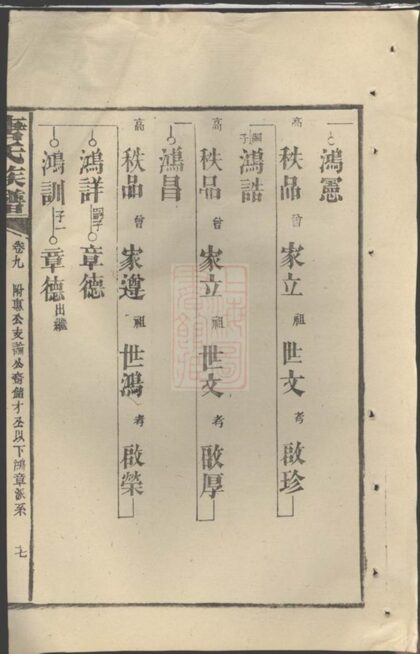 鴻憲
高 秩品 曾 家立 祖 世文 考 啟珍
鴻誥 嗣子
高 秩品 曾 家立 祖 世文 考 啟厚
鴻昌
高 秩品 曾 家遵 祖 世鴻 考 啟榮
鴻詳 嗣子一 章德
鴻訓 子一 章德 出繼
氏族譜 卷九 附惠公支 公裔儲才丕以下鴻章派系 七